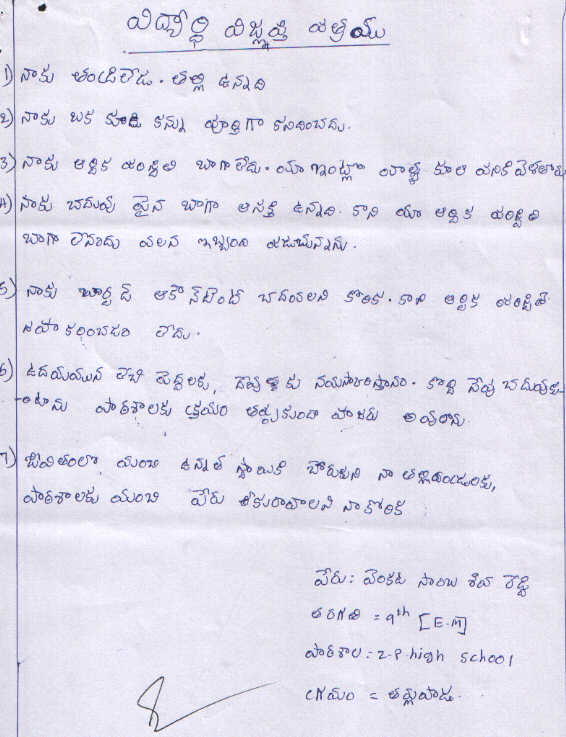 విద్యార్థి విజ్ఞప్తి పత్రము
1) నాకు తండ్రిలేడు. తల్లి ఉన్నది
2) నాకు ఒక కుడి కన్ను పూర్తిగా కనిపించదు.
3) నాకు ఆర్థిక పరిస్థితి బాగాలేదు. మా ఇంట్లో వాళ్ళు కూలి పనికి వెళతారు
4) నాకు చదువు పైన బాగా ఆసక్తి ఉన్నది. కాని మా ఆర్థిక పరిస్థితి
బాగా లేనందు వలన ఇబ్బంది పడుచున్నాను.
5) నాకు చార్టడ్ అకౌన్‌టెంట్ చదవలని కోరిక. కాని ఆర్థిక పరిస్థితి
సహకరించడం లేదు.
6) ఉదయమున లేచి పెద్దలకు, దేవుళ్లకు నమస్కారిస్తాను. కొద్ది సేపు చదువుకు
-ంటాను పాఠశాలకు క్రమం తప్పకుండా హాజరు అవుతాను.
7) జీవితంలో మంచి ఉన్నత స్థాయికి చేరుకుని నా తల్లిదండ్రులకు,
పాఠశాలకు మంచి పేరు తీకురావాలని నా కోరిక
పేరు: వెంకట సాంబ శివ రెడ్డి
తరగతి = 9th [E.M]
పాఠశాల: Z.P.high school
గ్రామం = తమ్మపాడు.